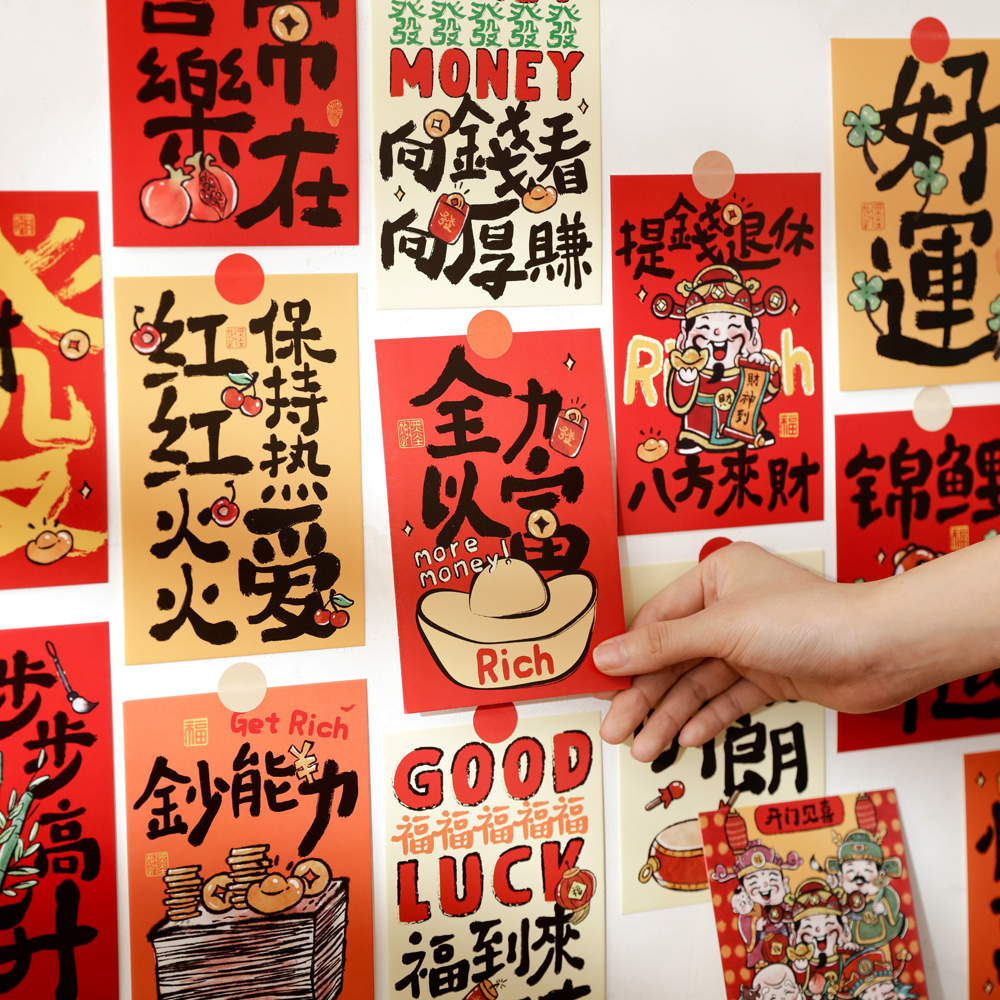 喜樂
常在
發發發發發
MONEY
向錢看
發
向厚賺
好運
提錢退休
Rich
財神到
財
福
八方來財
发
红红火火
保持热爱
全力
發
以富
more
money!
Rich
锦鲤
步步高升
福
Get Rich
鈔能力
¥
GOOD
福福福福福
LUCK
福到來
朗
开门见喜